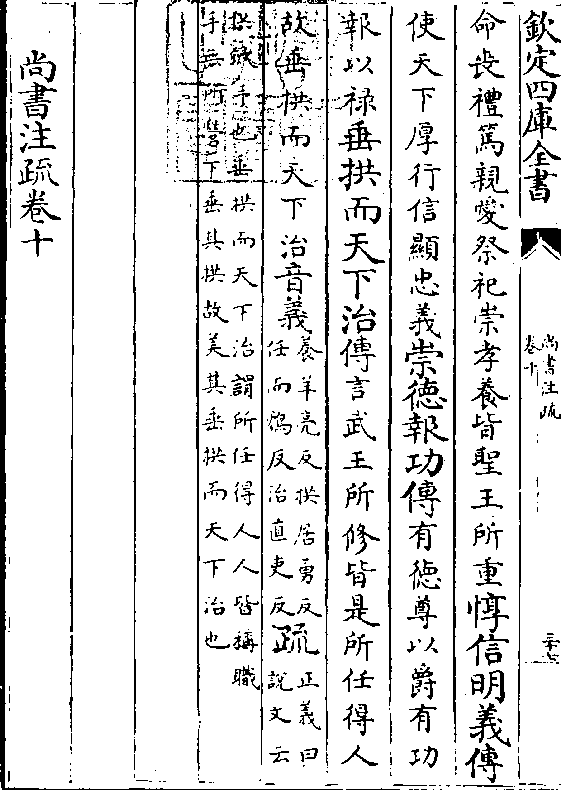 欽定四庫全書
尚書注疏
卷十
三十七
命喪禮篤親愛祭祀崇孝養皆聖王所重惇信明義傳
使天下厚行信顯忠義崇德報功傳有德尊以爵有功
報以禄垂拱而天下治傳言武王所修皆是所任得人
故垂拱而天下治音義
養羊亮反拱居勇反
任而鴆反治直吏反
疏
正義曰
說文云
拱斂手也垂拱而天下治謂所任得人人皆稱職
手無所營下垂其拱故美其垂拱而天下治也
尚書注疏卷十